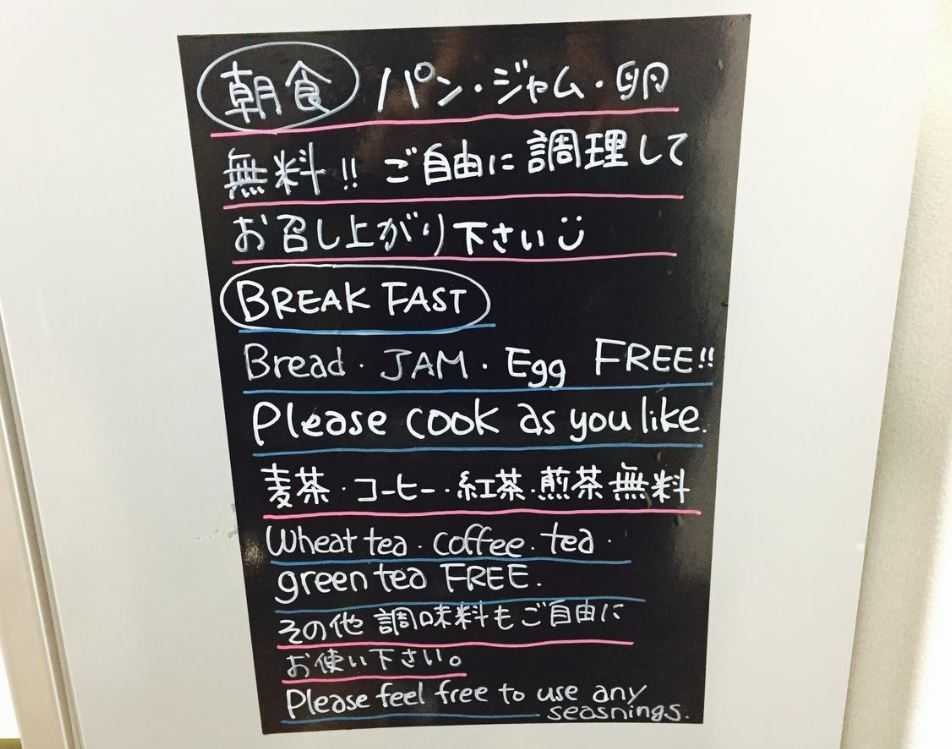 朝食 パン・ジャム・卵
無料!! ご自由に調理して
お召し上がり下さい
BREAK FAST
Bread・JAM・Egg FREE!!
Please cook as you like.
麦茶・コーヒー・紅茶・煎茶 無料
Wheat tea・coffee・tea・
green tea FREE.
その他 調味料もご自由に
お使い下さい。
Please feel free to use any
seasnings.